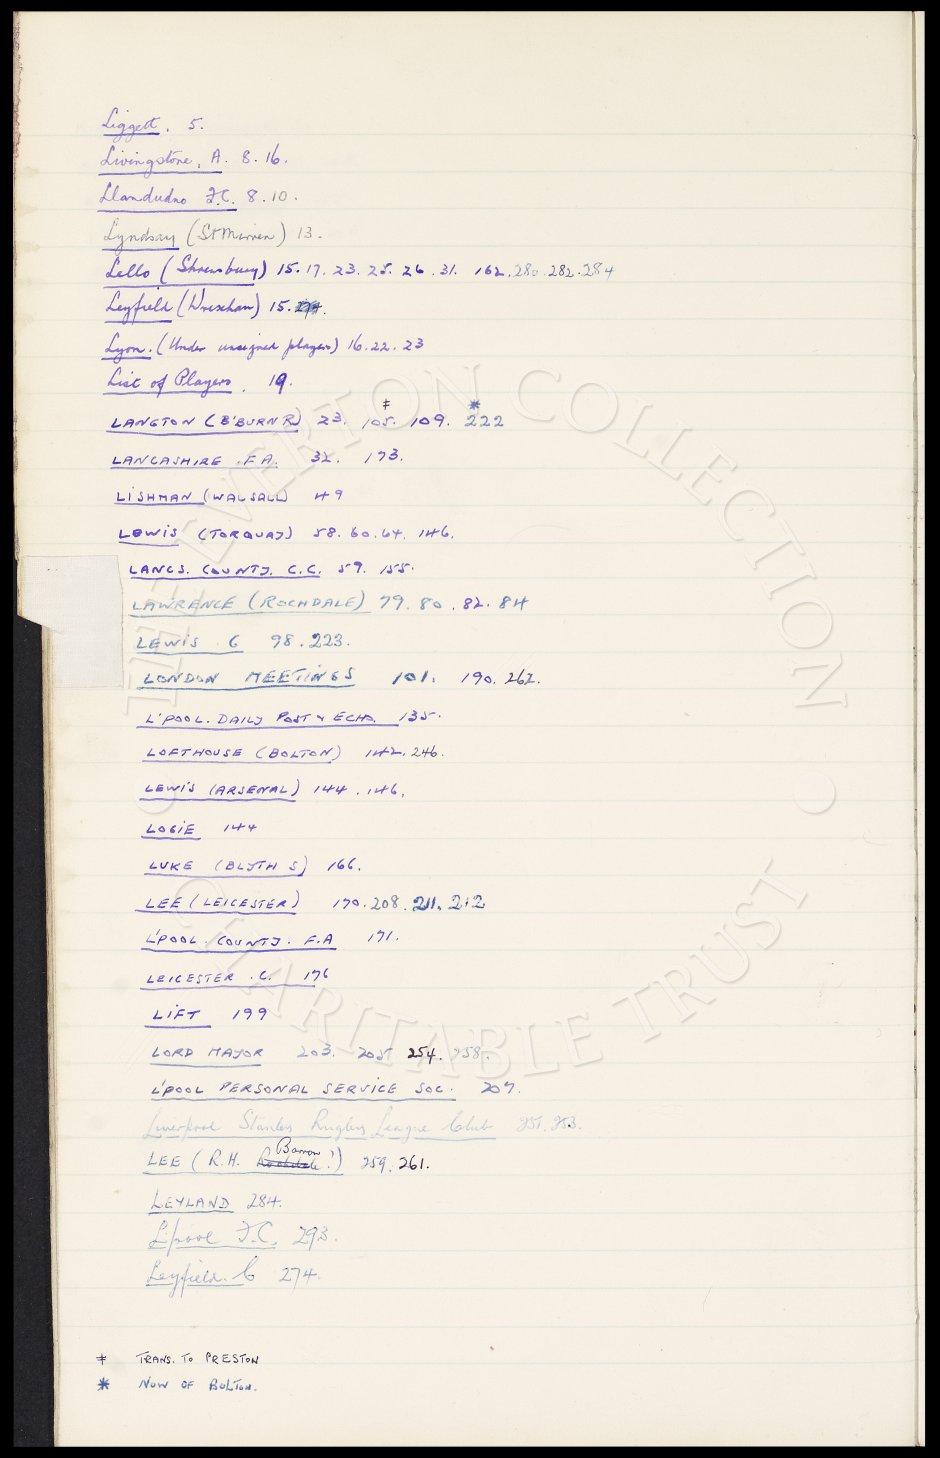 Liggett. 5.
Livingstone, A. 8. 16.
Llandudno F.C. 8. 10.
Lyndsay (St Mirren) 13.
Lello (Shrewsbury) 15. 17. 23. 25. 26. 31. 162. 280. 282. 284
Leyfield (Wrexham) 15. 274.
Lyon. (Under unsigned players) 16. 22. 23
List of Players. 19.
‡ *
LANGTON (B'BURN R) 23. 105. 109. 222
LANCASHIRE F.A. 32. 173.
LISHMAN (WALSALL) 49
LEWIS (TORQUAY) 58. 60. 64. 146.
LANCS. COUNTY. C.C. 59. 155.
LAWRENCE (ROCHDALE) 79. 80. 82. 84
LEWIS G 98. 223.
LONDON MEETINGS 101. 190. 262.
L'POOL. DAILY POST & ECHO. 135.
LOFTHOUSE (BOLTON) 142. 246.
LEWIS (ARSENAL) 144. 146.
LOGIE 144
LUKE (BLYTH S) 166.
LEE (LEICESTER) 170. 208. 211. 212
L'POOL. COUNTY. F.A 171.
LEICESTER. C. 176
LIFT 199
LORD MAYOR 203. 205. 254. 258.
L'POOL PERSONAL SERVICE SOC. 207.
Liverpool Stanley Rugby League Club 251. 253.
Barrow
LEE (R.H. Rochdale!) 259. 261.
LEYLAND 284.
L'pool F.C. 293.
Leyfield. C 274.
‡ TRANS. TO PRESTON
* NOW OF BOLTON.
THE EVERTON COLLECTION
CHARITABLE TRUST